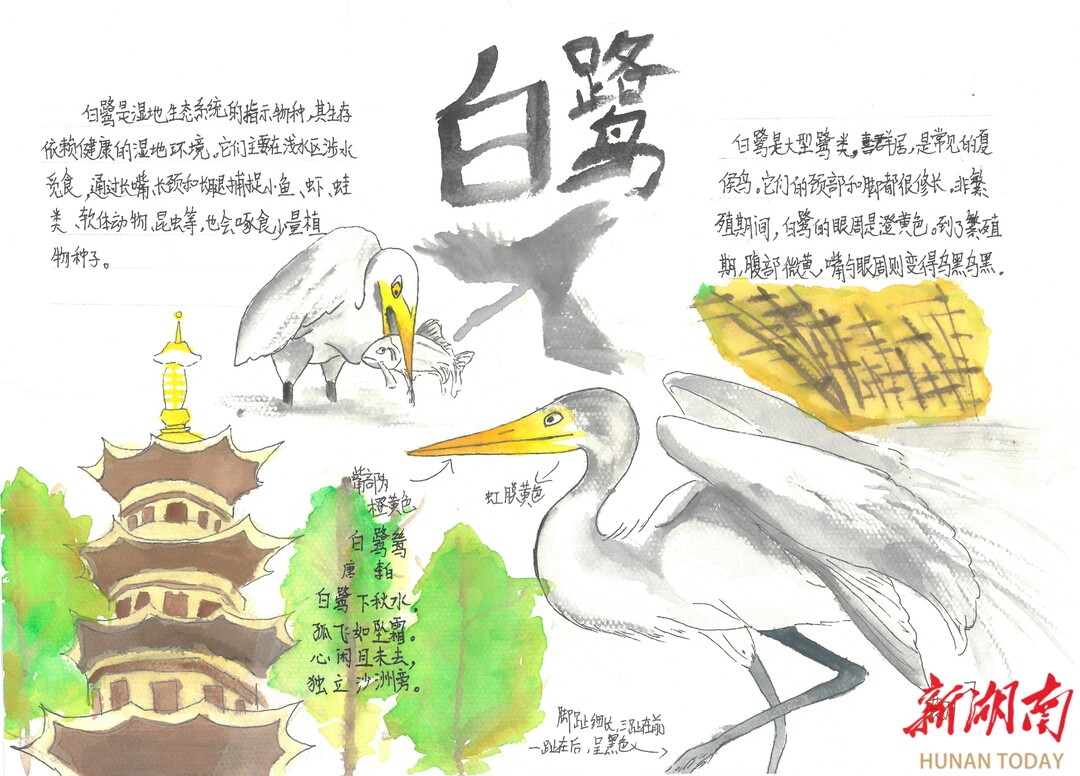 白鹭
白鹭是湿地生态系统的指示物种，其生存
依赖健康的湿地环境。它们主要在浅水区涉水
觅食，通过长嘴、长颈和长腿捕捉小鱼、虾、蛙
类、软体动物、昆虫等，也会啄食少量植
物种子。
白鹭是大型鹭类。喜群居，是常见的夏
候鸟。它们的颈部和脚都很修长。非繁
殖期间，白鹭的眼周是澄黄色。到了繁殖
期，腹部微黄，嘴与眼周则变得乌黑乌黑。
嘴部为
橙黄色
虹膜黄色
白鹭鸶
唐 李白
白鹭下秋水，
孤飞如坠霜。
心闲且未去，
独立沙洲傍。
脚趾细长，三趾在前
一趾在后，呈黑色
新湖南
HUNAN TODAY